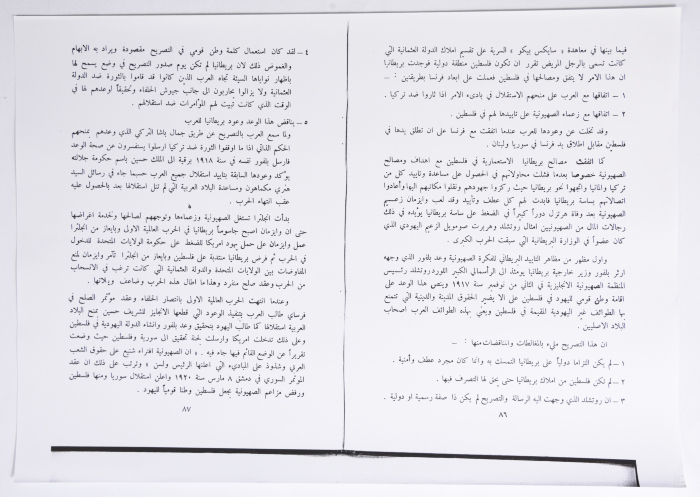 فيما بينها في معاهدة « سايكس بيكو » السرية على تقسيم املاك الدولة العثمانية التي
كانت تسمى بالرجل المريض تقرر ان تكون فلسطين منطقة دولية فوجدت بريطانيا
ان هذا الامر لا يتفق ومصالحها في فلسطين فعملت على ابعاد فرنسا بطريقتين : ـ
١ ـ اتفاقها مع العرب على منحهم الاستقلال في بادىء الامر اذا ثاروا ضد تركيا .
٢ ـ اتفاقها مع زعماء الصهيونية على تاييدها لهم في فلسطين .
وقد تخلت عن وعودها للعرب عندما اتفقت مع فرنسا على ان تطلق يدها في
فلسطين مقابل اطلاق يد فرنسا في سوريا ولبنان .
كما اتفقت مصالح بريطانيا الاستعمارية في فلسطين مع اهداف ومصالح
الصهيونية خصوصا بعدما فشلت محاولاتهم في الحصول على مساعدة وتاييد كل من
تركيا والمانيا واتجهوا نحو بريطانيا حيث ركزوا جهودهم ونقلوا مكاتبهم اليها وأعادوا
اتصالاتهم بساسة بريطانيا فابدت لهم كل عطف وتأييد وقد لعب وايزمان زعيم
الصهيونية بعد وفاة هرتزل دوراً كبيراً في الضغط على ساسة بريطانيا يؤيده في ذلك
رجالات المال من الصهيونيين امثال روتشلد وهربرت صموئيل الزعيم اليهودي الذي
كان عضواً في الوزارة البريطانية التي سبقت الحرب الكبرى .
واول مظهر من مظاهر التاييد البريطاني للفكرة الصهيونية وعد بلفور الذي وجهه
ارثر بلفور وزير خارجية بريطانيا يومئذ الى الرأسمالي الكبير اللورد روتشلد رئيس
المنظمة الصهيونية الانجليزية في الثاني من نوفمبر سنة ١٩١٧ وينص هذا الوعد على
اقامة وطن قومي لليهود في فلسطين على الا يضير الحقوق المدينة والدينية التي تتمتع
بها الطوائف غير اليهودية المقيمة في فلسطين ويعني بهذه الطوائف العرب اصحاب
البلاد الاصليين .
ان هذا التصريح مليء بالمغالطات والمناقضات منها : ـ
١ ـ لم يكن التزاما دولياً على بريطانيا التمسك به وانما كان مجرد عطف وأمنية .
٢ ـ لم تكن فلسطين من املاك بريطانيا حتى يحق لها التصرف فيها .
٣ ـ ان روتشلد الذي وجهت اليه الرسالة والتصريح لم يكن ذا صفة رسمية او دولية .
٨٦
٤ ـ لقد كان استعمال كلمة وطن قومي في التصريح مقصودة ويراد به الابهام
والغموض ذلك لان بريطانيا لم تكن يوم صدور التصريح في وضع يسمح لها
باظهار نواياها السيئة تجاه العرب الذين كانوا قد قاموا بالثورة ضد الدولة
العثمانية ولا يزالوا يحاربون الى جانب جيوش الحلفاء وتحقيقاً لوعدهم لها في
الوقت الذي كانت تبيت لهم المؤامرات ضد استقلالهم .
٥ ـ يناقض هذا الوعد وعود بريطانيا للعرب
ولما سمع العرب بالتصريح عن طريق جمال باشا التركي الذي وعدهم بمنحهم
الحكم الذاتي اذا ما اوقفوا الثورة ضد تركيا ارسلوا يستفسرون عن صحة الوعد
فارسل بلفور نفسه في سنة ١٩١٨ برقية الى الملك حسين باسم حكومة جلالته
يؤكد وعودها السابقة بتاييد استقلال جميع العرب حسبما جاء في رسائل السيد
هنري مكماهون ومساعدة البلاد العربية التي لم تنل استقلالها بعد بالحصول عليه
عقب انتهاء الحرب .
بدأت انجلترا تستغل الصهيونية وزعماءها وتوجههم لصالحها ولخدمة اغراضها
حتى ان وايزمان اصبح جاسوساً بريطانيا في الحرب العالمية الاولى وبايعاز من انجلترا
عمل وايزمان على حمل يهود امريكا للضغط على حكومة الولايات المتحدة للدخول
في الحرب ثم فرض بريطانيا منتدبة على فلسطين وبايعاز من انجلترا تآمر وايزمان لمنع
المفاوضات بين الولايات المتحدة والدولة العثمانية التي كانت ترغب في الانسحاب
من الحرب وعقد صلح منفرد وهذا ما اطال هذه الحرب وضاعف ويلاتها .
وعندما انتهت الحرب العالمية الاولى بانتصار الحلفاء وعقد مؤتمر الصلح في
فرساي طالب العرب بتنفيذ الوعود التي قطعها الانجليز للشريف حسين بمنح البلاد
العربية استقلالها كما طالب اليهود بتحقيق وعد بلفور وانشاء الدولة اليهودية في فلسطين
وعلى ذلك تدخلت امريكا وارسلت لجنة تحقيق الى سورية وفلسطين حيث وضعت
تقريراً عن الوضع القائم فيها جاء فيه . « ان الصهيونية افتراء شنيع على حقوق الشعب
العربي وشذوذ على المبادىء التي اعلنها الرئيس ولسن » وترتب على ذلك ان عقد
المؤتمر السوري في دمشق ٨ مارس سنة ١٩٢٠ واعلن استقلال سوريا ومنها فلسطين
ورفض مزاعم الصهيونية بجعل فلسطين وطنا قومياً لليهود .
٨٧